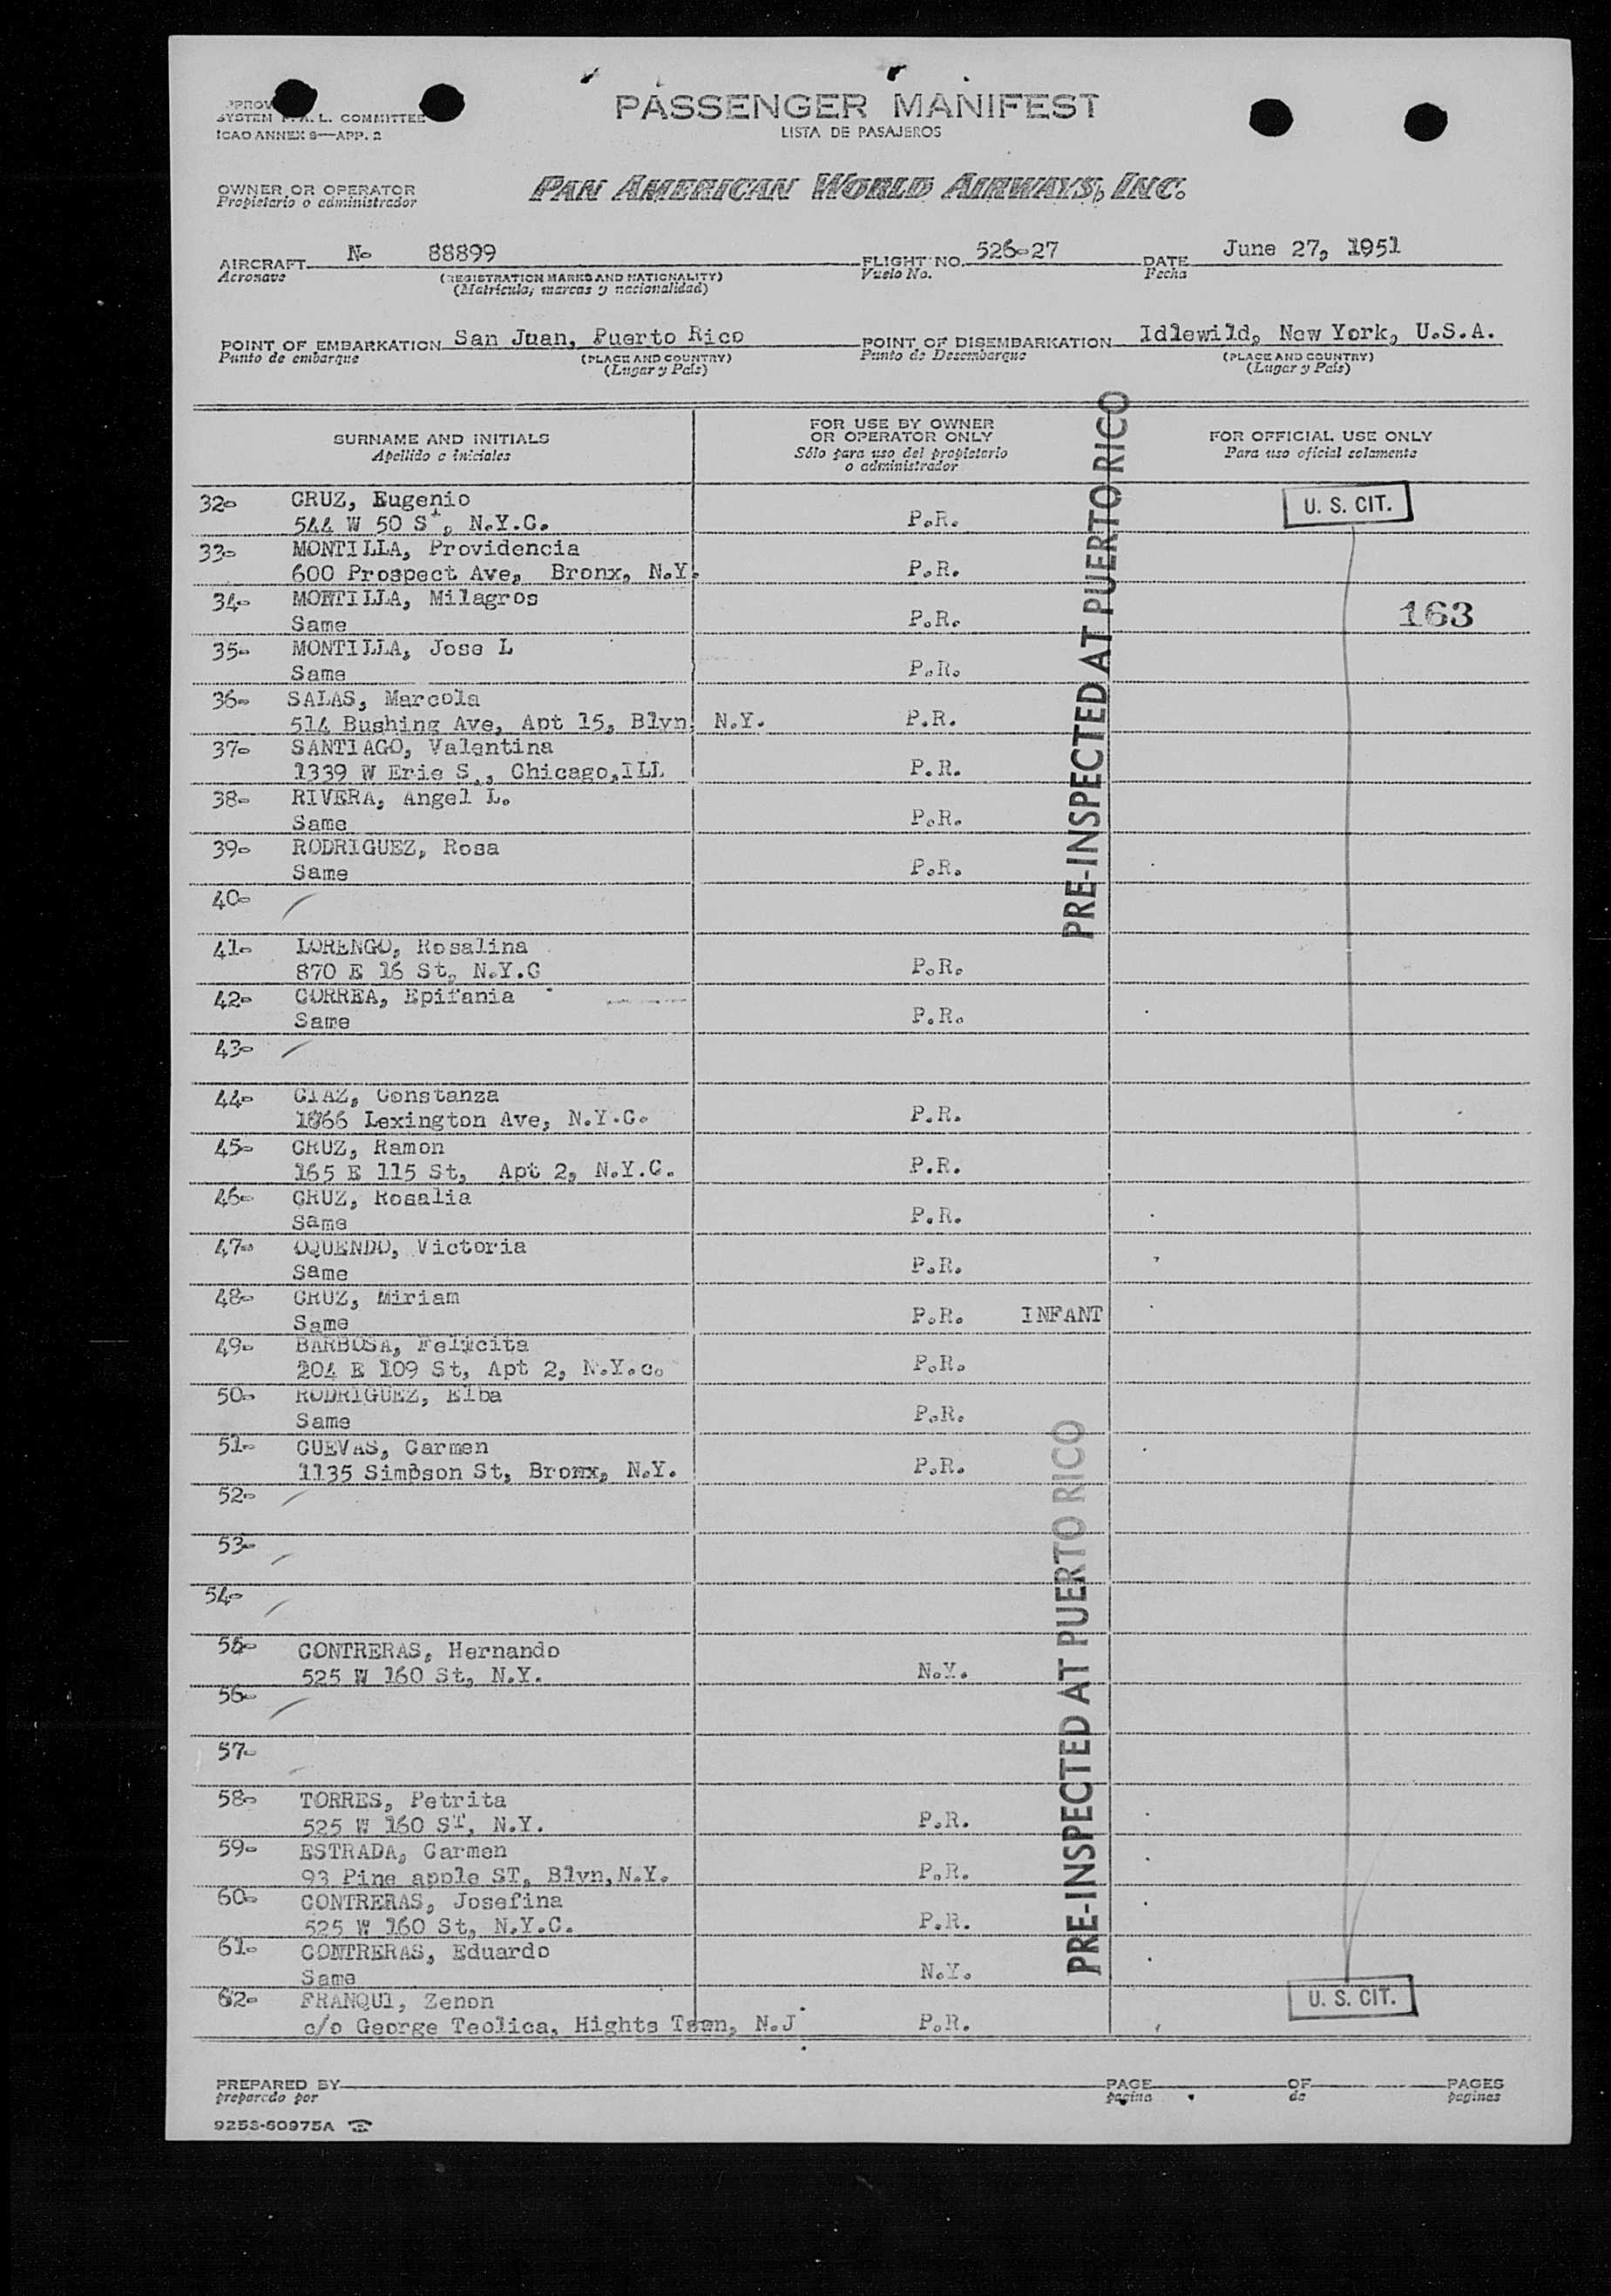 SYSTEM F. A. L. COMMITTEE
ICAO ANNEX 9—APP. 2
PASSENGER MANIFEST
LISTA DE PASAJEROS
OWNER OR OPERATOR
Propietario o administrador
PAN AMERICAN WORLD AIRWAYS, INC.
AIRCRAFT No 88899 FLIGHT NO. 526-27 DATE June 27, 1951
Aeronave (REGISTRATION MARKS AND NATIONALITY) Vuelo No. Fecha
(Matrícula; marcas y nacionalidad)
POINT OF EMBARKATION San Juan, Puerto Rico POINT OF DISEMBARKATION Idlewild, New York, U.S.A.
Punto de embarque (PLACE AND COUNTRY) Punto de Desembarque (PLACE AND COUNTRY)
(Lugar y País) (Lugar y País)
SURNAME AND INITIALS
Apellido e iniciales
FOR USE BY OWNER
OR OPERATOR ONLY
Sólo para uso del propietario
o administrador
FOR OFFICIAL USE ONLY
Para uso oficial solamente
PRE-INSPECTED AT PUERTO RICO
32- CRUZ, Eugenio U. S. CIT.
544 W 50 St, N.Y.C. P.R.
33- MONTILLA, Providencia
600 Prospect Ave, Bronx, N.Y. P.R.
34- MONTILLA, Milagros 163
Same P.R.
35- MONTILLA, Jose L
Same P.R.
36- SALAS, Marcola
514 Bushing Ave, Apt 15, Blyn, N.Y. P.R.
37- SANTIAGO, Valentina
1339 W Erie S., Chicago, ILL P.R.
38- RIVERA, Angel L.
Same P.R.
39- RODRIGUEZ, Rosa
Same P.R.
40-
41- LORENGO, Rosalina
870 E 16 St, N.Y.C P.R.
42- CORREA, Epifania
Same P.R.
43-
44- CIAZ, Constanza
1866 Lexington Ave, N.Y.C. P.R.
45- CRUZ, Ramon
165 E 115 St, Apt 2, N.Y.C. P.R.
46- CRUZ, Rosalia
Same P.R.
47- OQUENDO, Victoria
Same P.R.
48- CRUZ, Miriam
Same P.R. INFANT
49- BARBOSA, Felicita
204 E 109 St, Apt 2, N.Y.c. P.R.
50- RODRIGUEZ, Elba
Same P.R.
51- CUEVAS, Carmen
1135 Simpson St, Bronx, N.Y. P.R.
52-
53-
54-
PRE-INSPECTED AT PUERTO RICO
55- CONTRERAS, Hernando
525 W 160 St, N.Y. N.Y.
56-
57-
58- TORRES, Petrita
525 W 160 ST, N.Y. P.R.
59- ESTRADA, Carmen
93 Pine apple ST, Blyn, N.Y. P.R.
60- CONTRERAS, Josefina
525 W 160 St, N.Y.C. P.R.
61- CONTRERAS, Eduardo
Same N.Y.
62- FRANQUI, Zenon U. S. CIT.
c/o George Teolica, Hights Town, N.J P.R.
PREPARED BY PAGE OF PAGES
preparado por página de páginas
9253-60975A